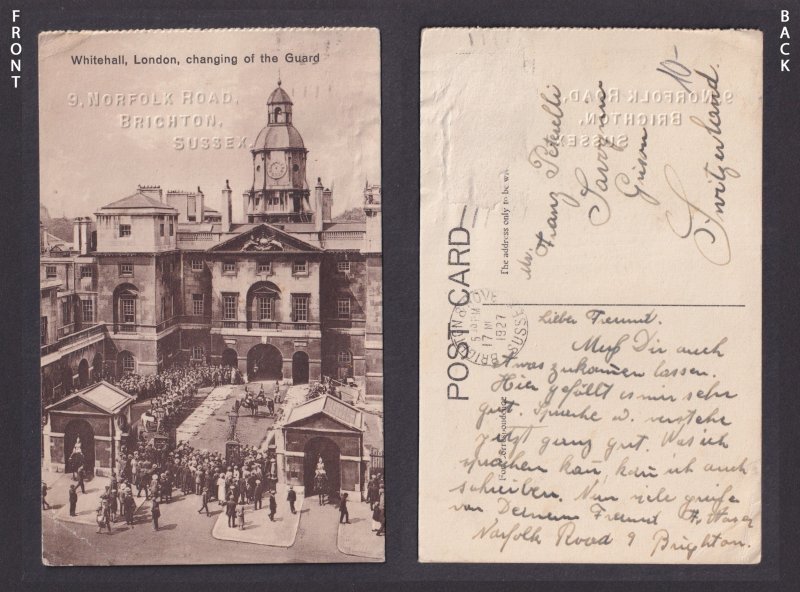 FRONT
BACK
Whitehall, London, changing of the Guard
9, NORFOLK ROAD,
BRIGHTON,
SUSSEX.
10-
Mr. Franz
Switzerland.
The address only to be
POST CARD
BRIGHTON & HOVE
17
1927
SUSSEX
Lieber Freund.
Muß Dir auch
etwas zukommen lassen.
Hier gefällt es mir sehr
gut. Sprache u. verstehe
jetzt ganz gut. Was ich
sprechen kan, kan ich auch
schreiben. Nun viele grüße
von Deinem Freund
Norfolk Road 9 Brighton.